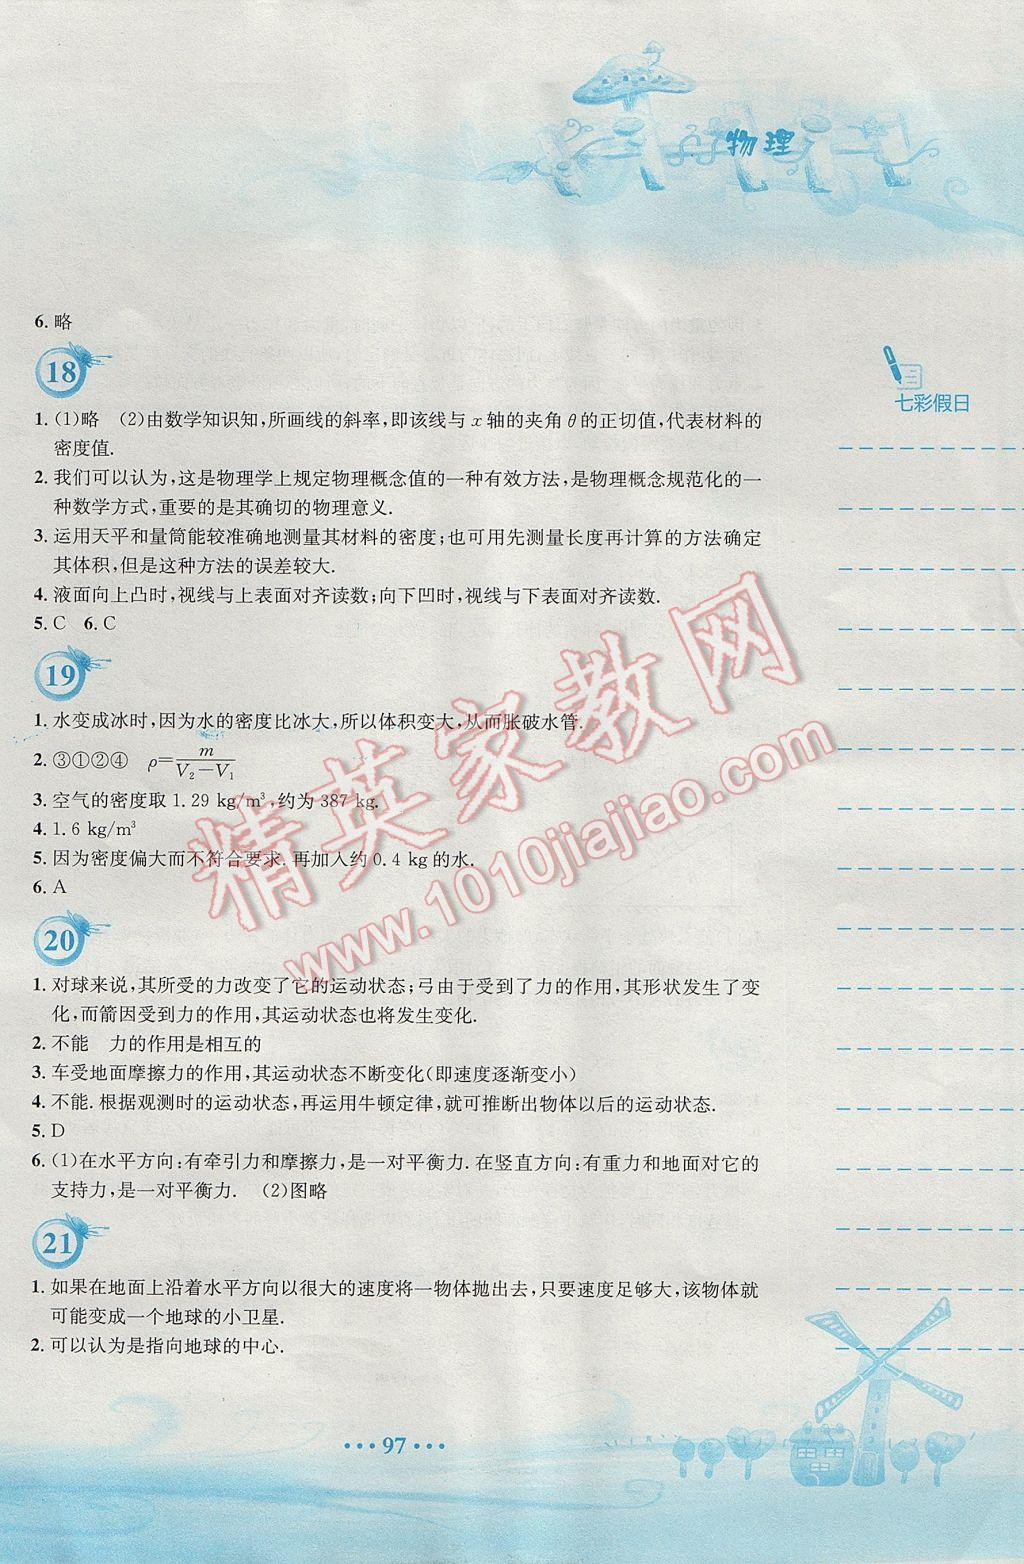 物理
6. 略
18
七彩假日
1. (1)略　(2)由数学知识知,所画线的斜率,即该线与 x 轴的夹角 θ 的正切值,代表材料的
密度值.
2. 我们可以认为,这是物理学上规定物理概念值的一种有效方法,是物理概念规范化的一
种数学方式,重要的是其确切的物理意义.
3. 运用天平和量筒能较准确地测量其材料的密度;也可用先测量长度再计算的方法确定
其体积,但是这种方法的误差较大.
4. 液面向上凸时,视线与上表面对齐读数;向下凹时,视线与下表面对齐读数.
5. C　6. C
19
1. 水变成冰时,因为水的密度比冰大,所以体积变大,从而胀破水管.
2. ③①②④　ρ=m/(V₂−V₁)
3. 空气的密度取 1.29 kg/m³,约为 387 kg.
4. 1.6 kg/m³
5. 因为密度偏大而不符合要求.再加入约 0.4 kg 的水.
6. A
20
1. 对球来说,其所受的力改变了它的运动状态;弓由于受到了力的作用,其形状发生了变
化,而箭因受到力的作用,其运动状态也将发生变化.
2. 不能　力的作用是相互的
3. 车受地面摩擦力的作用,其运动状态不断变化(即速度逐渐变小)
4. 不能.根据观测时的运动状态,再运用牛顿定律,就可推断出物体以后的运动状态.
5. D
6. (1)在水平方向:有牵引力和摩擦力,是一对平衡力.在竖直方向:有重力和地面对它的
支持力,是一对平衡力.　(2)图略
21
1. 如果在地面上沿着水平方向以很大的速度将一物体抛出去,只要速度足够大,该物体就
可能变成一个地球的小卫星.
2. 可以认为是指向地球的中心.
97
精英家教网
www.1010jiajiao.com